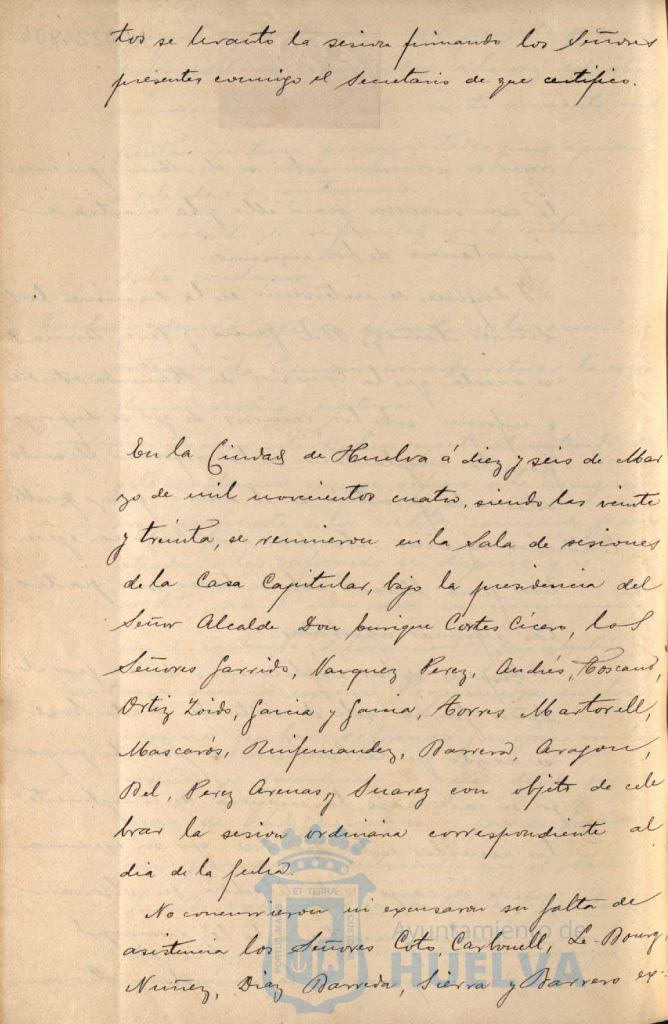 tos se levanto la sesion firmando los Señores
presentes conmigo el Secretario de que certifico.
En la Ciudad de Huelva á diez y seis de Mar
zo de mil novecientos cuatro, siendo las veinte
y treinta, se reunieron en la Sala de sesiones
de la Casa Capitular, bajo la presidencia del
Señor Alcalde Don Enrique Cortes Cícero, los
Señores Garrido, Vazquez Perez, Andrés, Toscano,
Ortiz, Zoido, Garcia y Garcia, Torres Martorell,
Mascarós, Ruifernandez, Barrera, Aragon,
Bel, Perez Arenas y Suarez con objeto de cele
brar la sesion ordinaria correspondiente al
dia de la fecha.
No concurrieron ni excusaron su falta de
asistencia los Señores Coto, Carbonell, Le-Bourg,
Nuñez, Diaz Barreda, Sierra y Barrero ex-
Ayuntamiento de
HUELVA